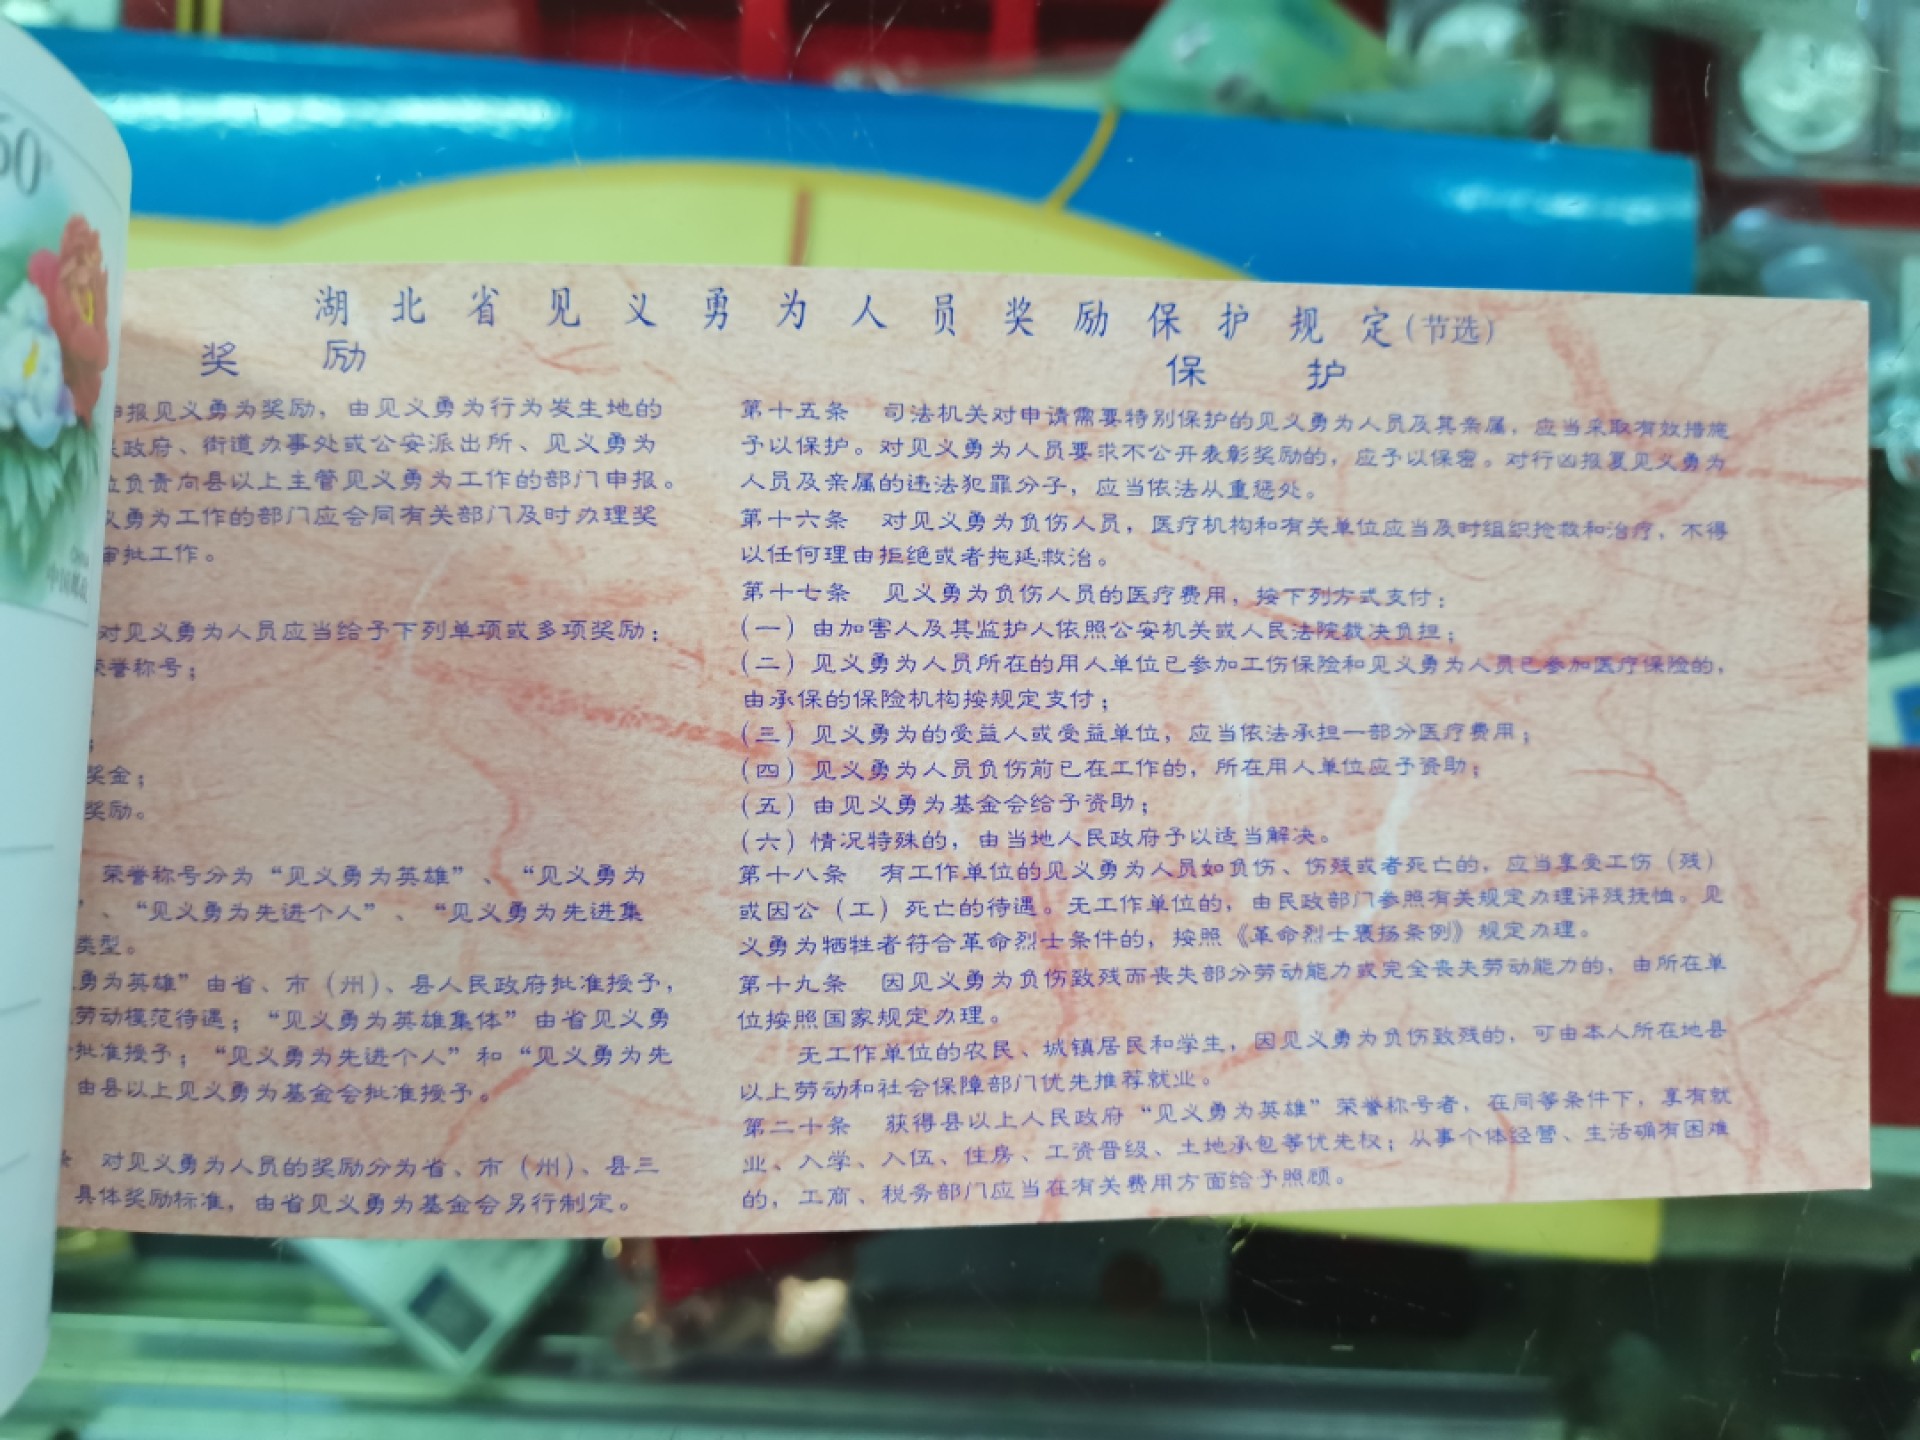 湖北省见义勇为人员奖励保护规定(节选)
奖 励
申报见义勇为奖励，由见义勇为行为发生地的
政府、街道办事处或公安派出所、见义勇为
负责向县以上主管见义勇为工作的部门申报。
义勇为工作的部门应会同有关部门及时办理奖
审批工作。
对见义勇为人员应当给予下列单项或多项奖励；
荣誉称号；
；
奖金；
奖励。
荣誉称号分为“见义勇为英雄”、“见义勇为
”、“见义勇为先进个人”、“见义勇为先进集
类型。
勇为英雄”由省、市（州）、县人民政府批准授予，
劳动模范待遇；“见义勇为英雄集体”由省见义勇
批准授予；“见义勇为先进个人”和“见义勇为先
由县以上见义勇为基金会批准授予。
对见义勇为人员的奖励分为省、市（州）、县三
具体奖励标准，由省见义勇为基金会另行制定。
保 护
第十五条 司法机关对申请需要特别保护的见义勇为人员及其亲属，应当采取有效措施
予以保护。对见义勇为人员要求不公开表彰奖励的，应予以保密。对行凶报复见义勇为
人员及亲属的违法犯罪分子，应当依法从重惩处。
第十六条 对见义勇为负伤人员，医疗机构和有关单位应当及时组织抢救和治疗，不得
以任何理由拒绝或者拖延救治。
第十七条 见义勇为负伤人员的医疗费用，按下列方式支付：
(一) 由加害人及其监护人依照公安机关或人民法院裁决负担；
(二) 见义勇为人员所在的用人单位已参加工伤保险和见义勇为人员已参加医疗保险的，
由承保的保险机构按规定支付；
(三) 见义勇为的受益人或受益单位，应当依法承担一部分医疗费用；
(四) 见义勇为人员负伤前已在工作的，所在用人单位应予资助；
(五) 由见义勇为基金会给予资助；
(六) 情况特殊的，由当地人民政府予以适当解决。
第十八条 有工作单位的见义勇为人员如负伤、伤残或者死亡的，应当享受工伤（残）
或因公（工）死亡的待遇。无工作单位的，由民政部门参照有关规定办理评残抚恤。见
义勇为牺牲者符合革命烈士条件的，按照《革命烈士褒扬条例》规定办理。
第十九条 因见义勇为负伤致残而丧失部分劳动能力或完全丧失劳动能力的，由所在单
位按照国家规定办理。
无工作单位的农民、城镇居民和学生，因见义勇为负伤致残的，可由本人所在地县
以上劳动和社会保障部门优先推荐就业。
第二十条 获得县以上人民政府“见义勇为英雄”荣誉称号者，在同等条件下，享有就
业、入学、入伍、住房、工资晋级、土地承包等优先权；从事个体经营、生活确有困难
的，工商、税务部门应当在有关费用方面给予照顾。
60
中国邮政